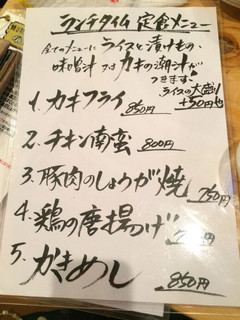 ランチタイム 定食メニュー
全てのメニューにライスと漬けもの、
味噌汁 又は カキの潮汁が
つきます!
ライスの大盛り
+50円也
1. カキフライ 850円
2. チキン南蛮 800円
3. 豚肉のしょうが焼 750円
4. 鶏の唐揚げ
5. かきめし 850円